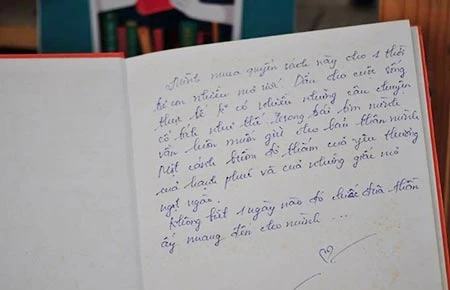 Mình mua quyển sách này cho 1 thời
trẻ con nhiều mơ ước! Dẫu cho cuộc sống
thực tế k có nhiều những câu chuyện
cổ tích như thế. Trong trái tim mình
vẫn luôn muốn giữ cho bản thân mình
một cánh buồm đỏ thắm của yêu thương
của hạnh phúc và của những giấc mơ
ngọt ngào.
Không biết 1 ngày nào đó chiếc đũa thần
ấy mang đến cho mình ...